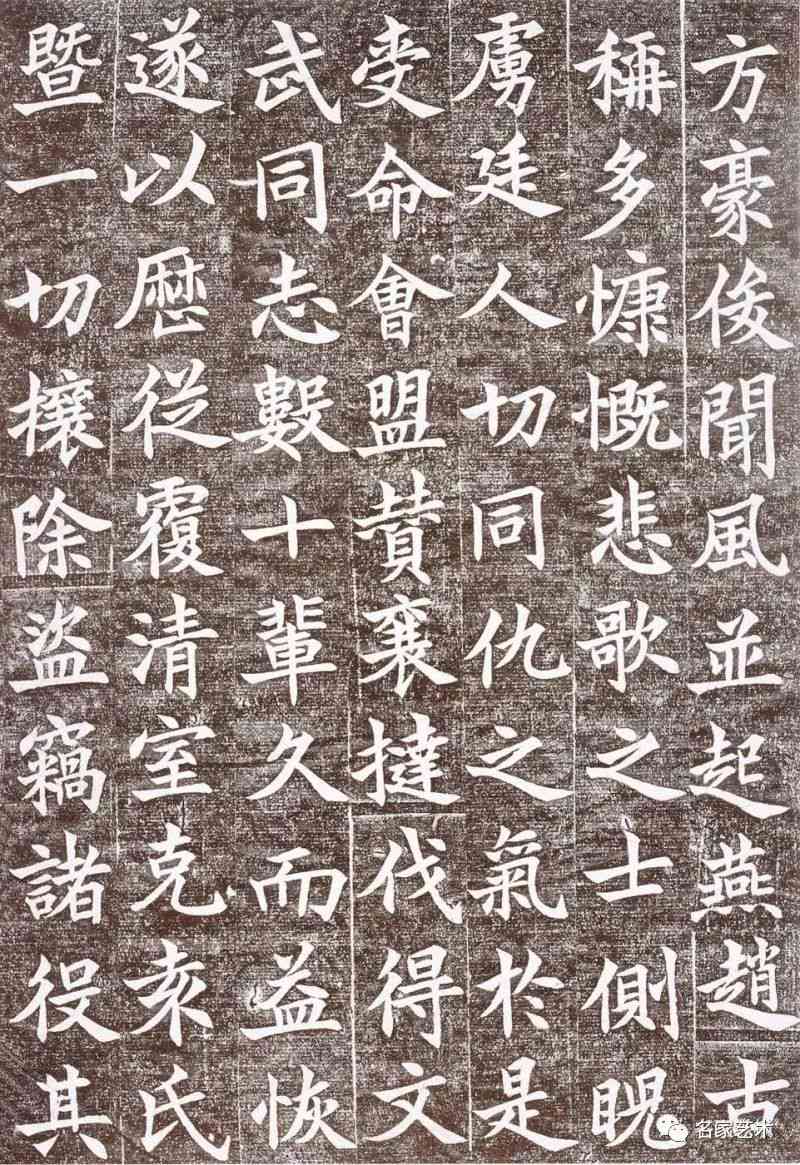 方豪俊聞風並起燕趙古
稱多慷慨悲歌之士側睨
虜廷人切同仇之氣於是
受命會盟贊襄撻伐得文
武同志數十輩久而益恢
遂以歷從覆清室克袁氏
暨一切攘除盜竊諸役其
名家艺术